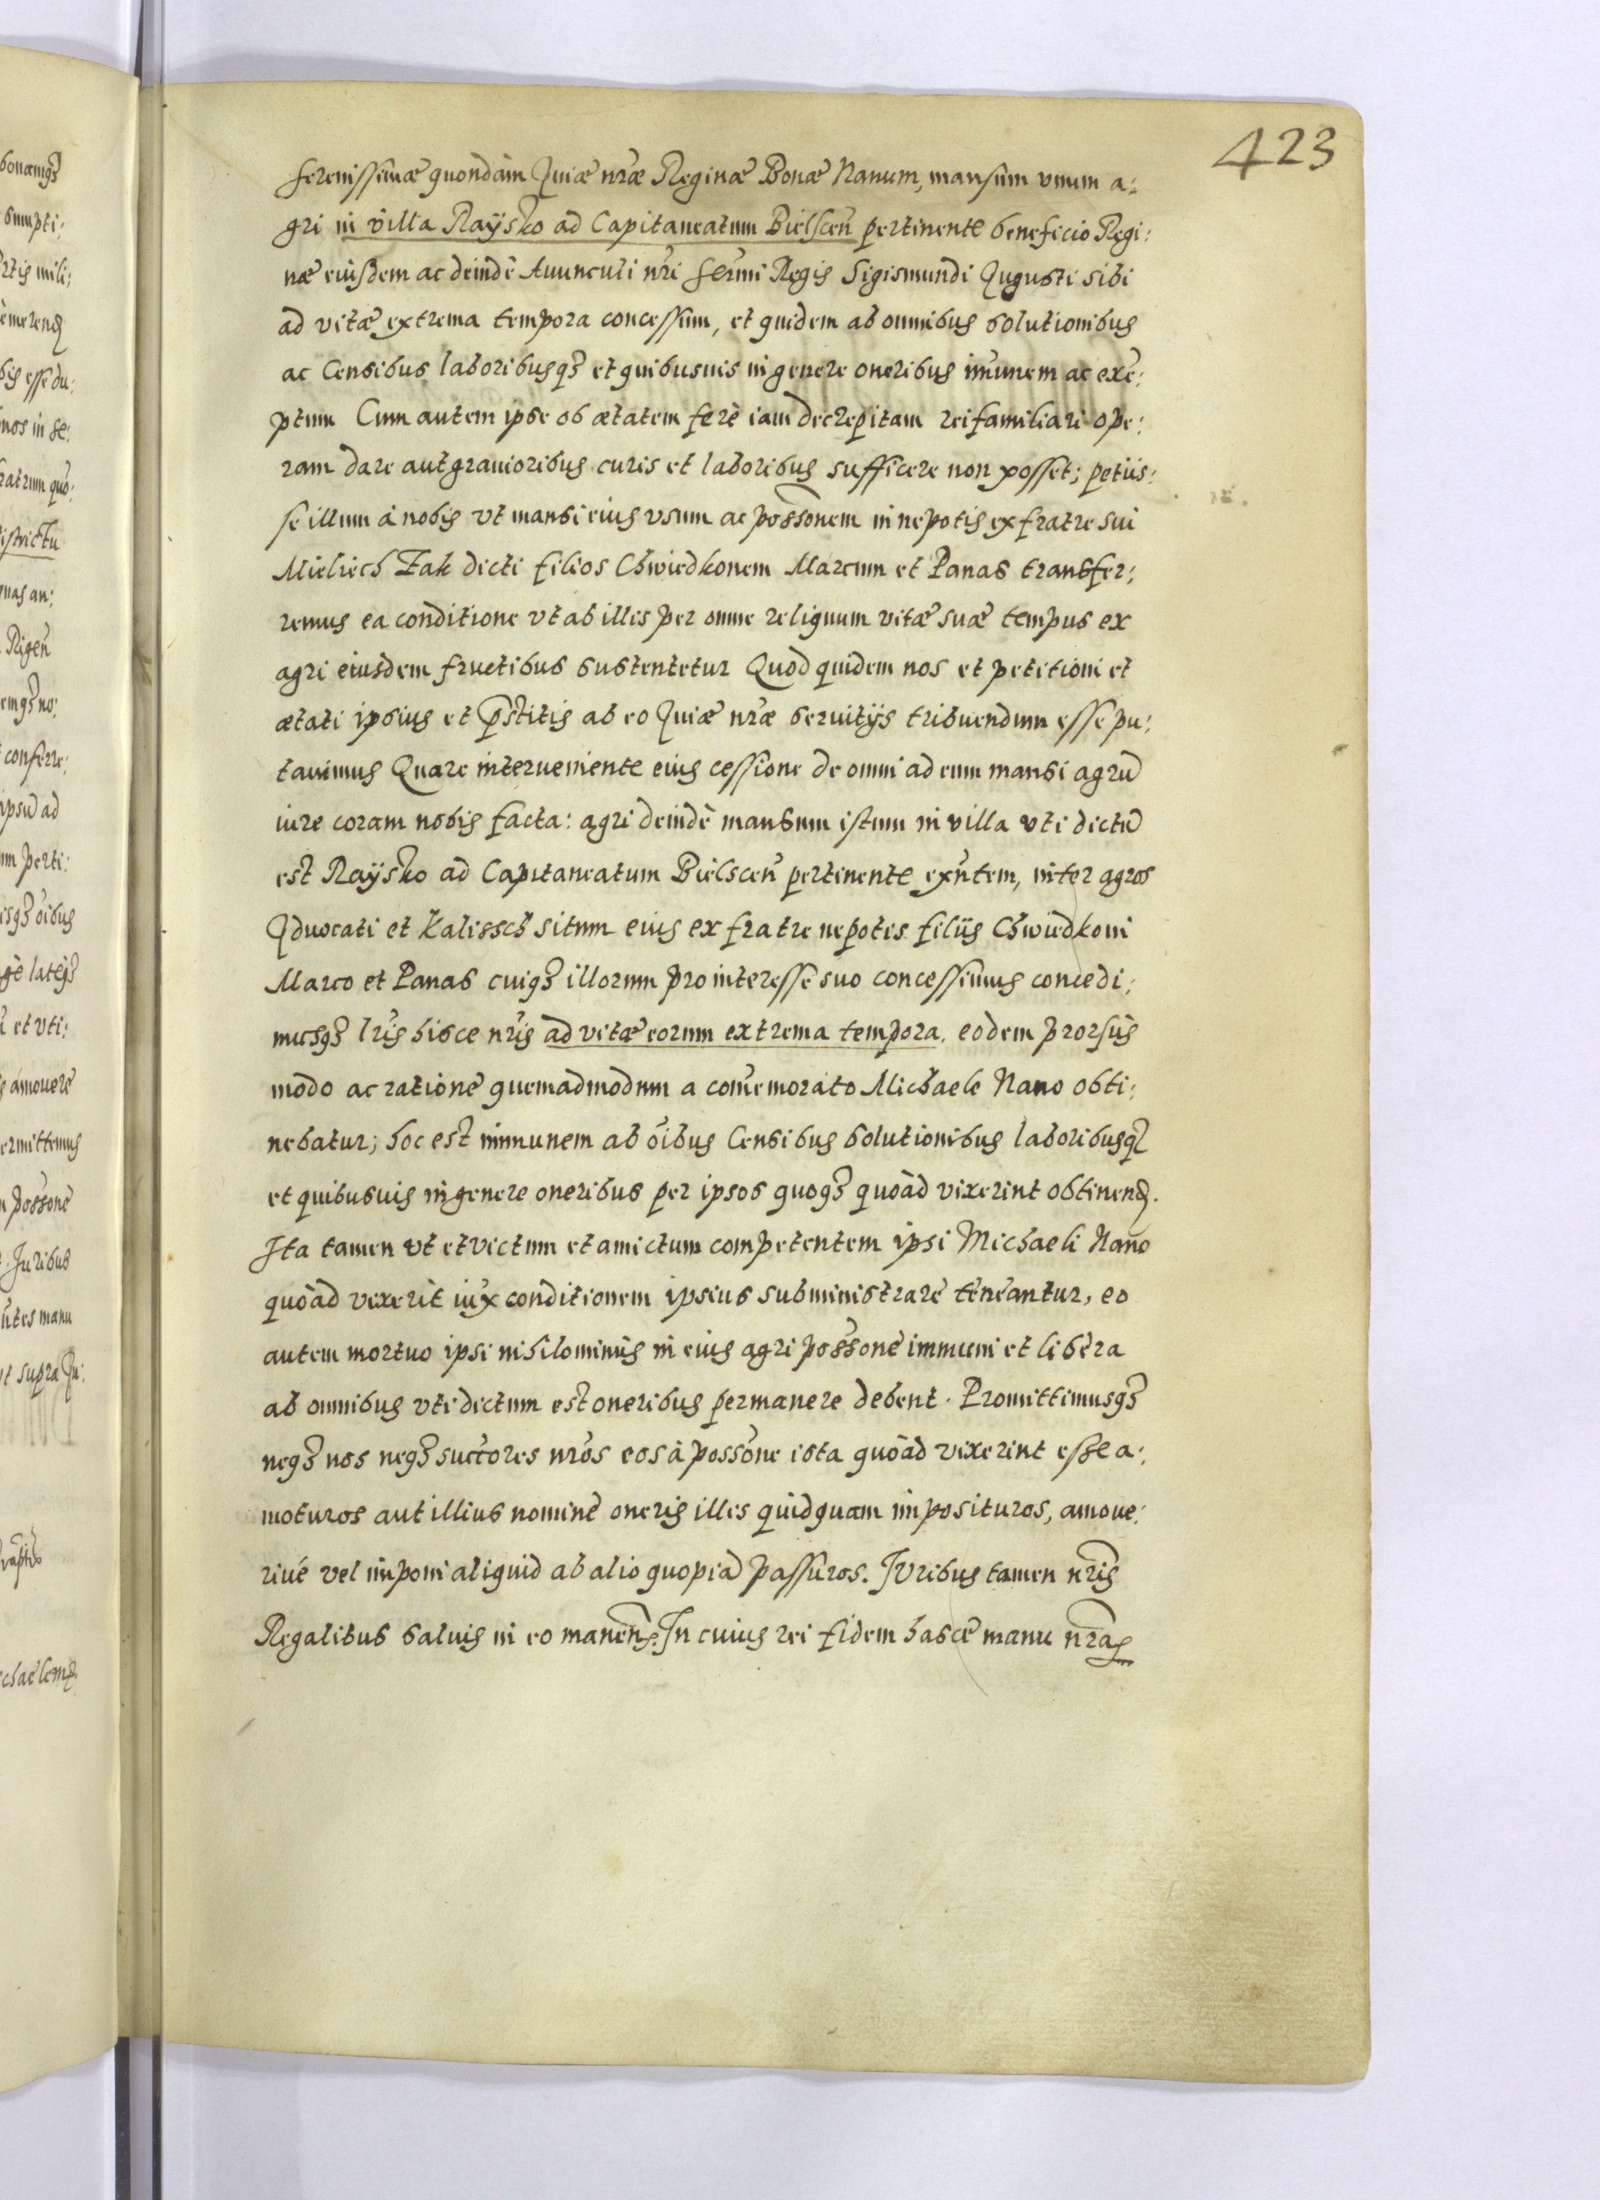 423
serenissimæ quondàm Auiæ nr̃æ Reginæ Bonæ Nanum, mansum vnum a:
gri in villa Raÿsko ad Capitaneatum Bielsceñ pertinente beneficio Regi:
næ eiusdem ac deindè Auunculi nr̃i serm̃i Regis Sigismundi Augusti sibi
ad vitæ extrema tempora concessum, et quidem ab omnibus solutionibus
ac Censibus laboribusq3 et quibusuis in genere oneribus im̃unem ac exẽ:
ptum Cum autem ipse ob ætatem ferè iam decrepitam rei familiari ope:
ram dare aut grauioribus curis et laboribus sufficere non posset; petiis:
se illum à nobis vt mansi eius vsum ac poss̃onem in nepotis ex fratre sui
Mieliech Zak dicti filios Chwiedkonem Marcum et Panas transfer:
remus ea conditione vt ab illis per omne reliquum vitæ suæ tempus ex
agri eiusdem fructibus sustentetur Quod quidem nos et petitioni et
ætati ipsius et p̃stitis ab eo Auiæ nr̃æ seruitijs tribuendum esse pu:
tauimus Quare interueniente eius cessione de omni ad eum mansi agrũ
iure coram nobis facta: agri deindè mansum istum in villa vti dictũ
est Raÿsko ad Capitaneatum Bielsceñ pertinente exñtem, inter agros
Aduocati et Kalissch situm eius ex fratre nepotis filijs Chwiedkoni
Marco et Panas cuiq3 illorum pro interesse suo concessimus concedi:
musq3 lr̃is hisce nr̃is ad vitæ eorum extrema tempora, eodem prorsùs
modo ac ratione quemadmodum a com̃emorato Michaele Nano obti:
nebatur; hoc est immunem ab õibus Censibus solutionibus laboribusq3
et quibusuis in genere oneribus per ipsos quoq3 quoàd vixerint obtinend.
Ita tamen vt et victum et amictum competentem ipsi Michaeli Nano
quoàd vixerit iux̃ conditionem ipsius subministrare teneantur, eo
autem mortuo ipsi nihilominùs in eius agri poss̃one immuni et libera
ab omnibus vti dictum est oneribus permanere debent. Promittimusq3
neq3 nos neq3 succ̃ores nr̃os eos à poss̃one ista quoàd vixerint esse a:
moturos aut illius nomine oneris illis quidquam imposituros, amoue:
riué vel imponi aliquid ab alio quopiã passuros. Iuribus tamen nr̃is
Regalibus saluis in eo maneñ. In cuius rei fidem hasce manu nr̃a